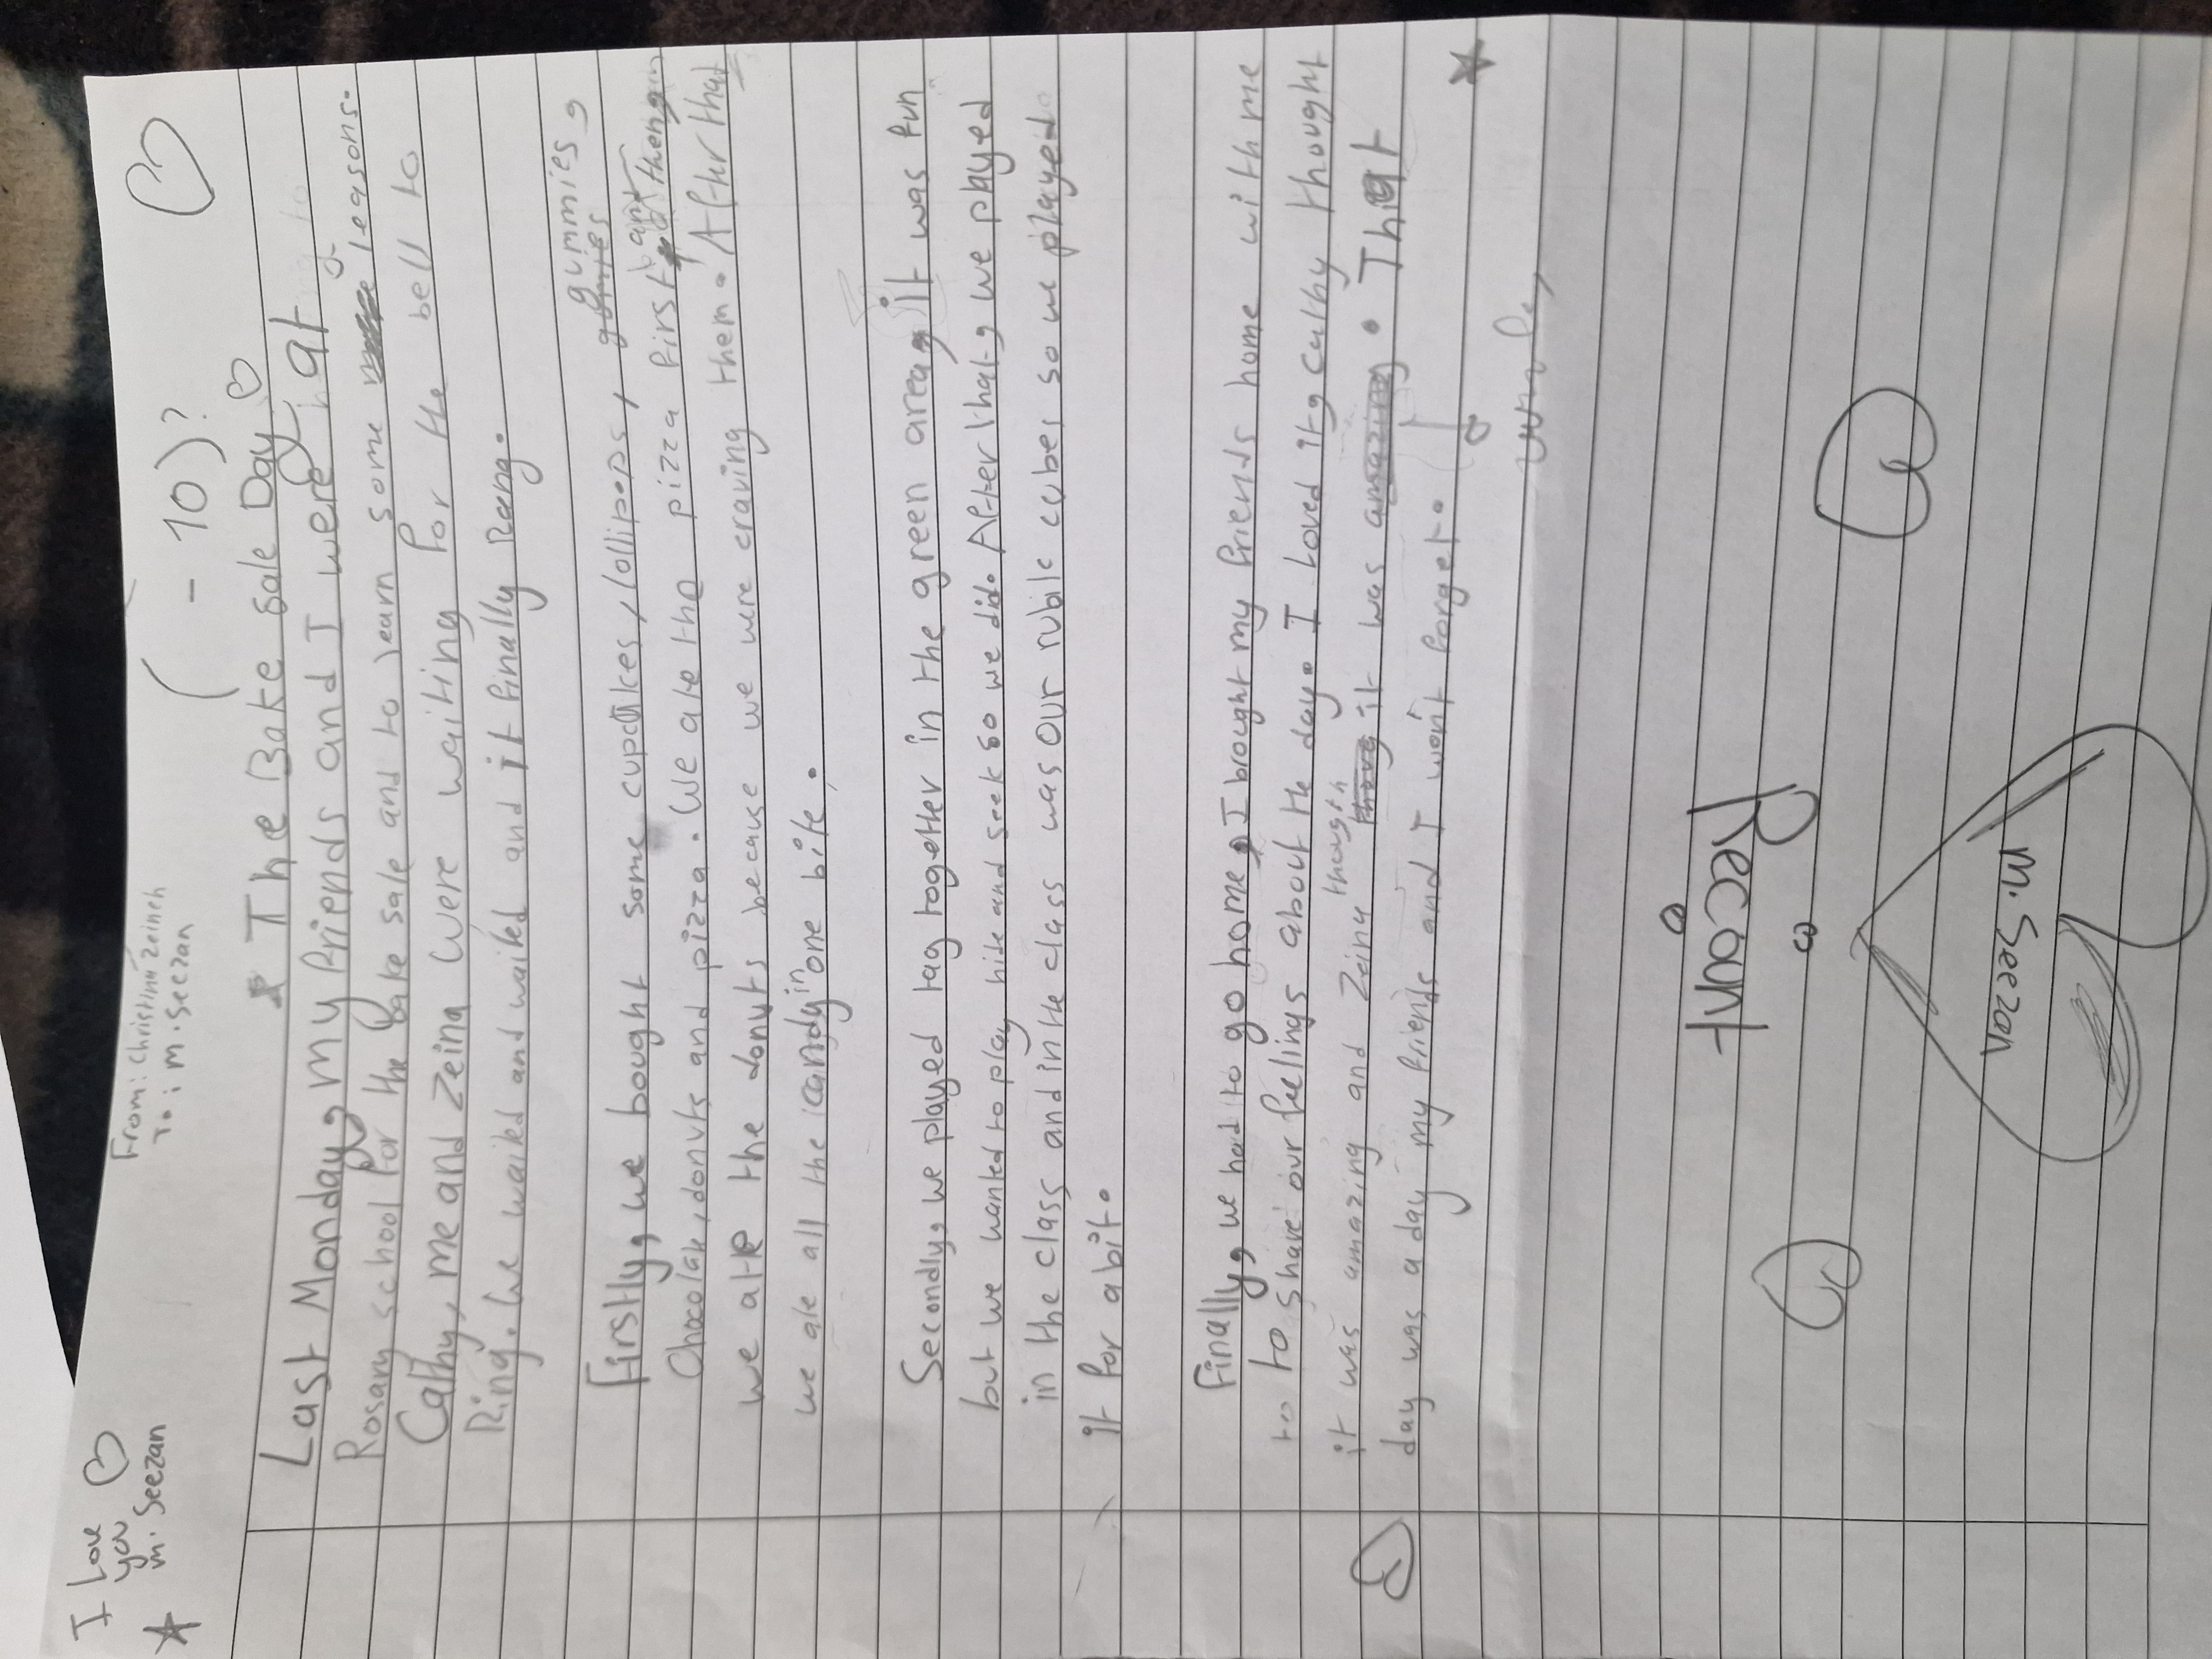 I Love
you
m. Seezan
From: Christina Zeineh
To: m. Seezan
( - 10)?
The Bake sale Day
Last Monday, my friends and I were at
Rosary school for the bake sale and to learn some leasons.
Cathy, me and Zeina were waiting for the bell to
Ring. We waited and waited and it finally Rang.
gummies,
Firstly, we bought some cupcakes, lollipops, gumies
Chocolate, donuts and pizza. We ate the pizza first and then
we ate the donuts because we were craving them. After that
we ate all the candy in one bite.
Secondly, we played tag together in the green area, it was fun
but we wanted to play hide and seek so we did. After that, we played
in the class and in the class was our rubik cubes so we played
it for a bit.
Finally, we had to go home, I brought my friends home with me
to to share our feelings about the day. I loved it, cathy thought
it was amazing and Zeiny though it was amazing. That
day was a day my friends and I won't forget.
Recount
M. Seezan